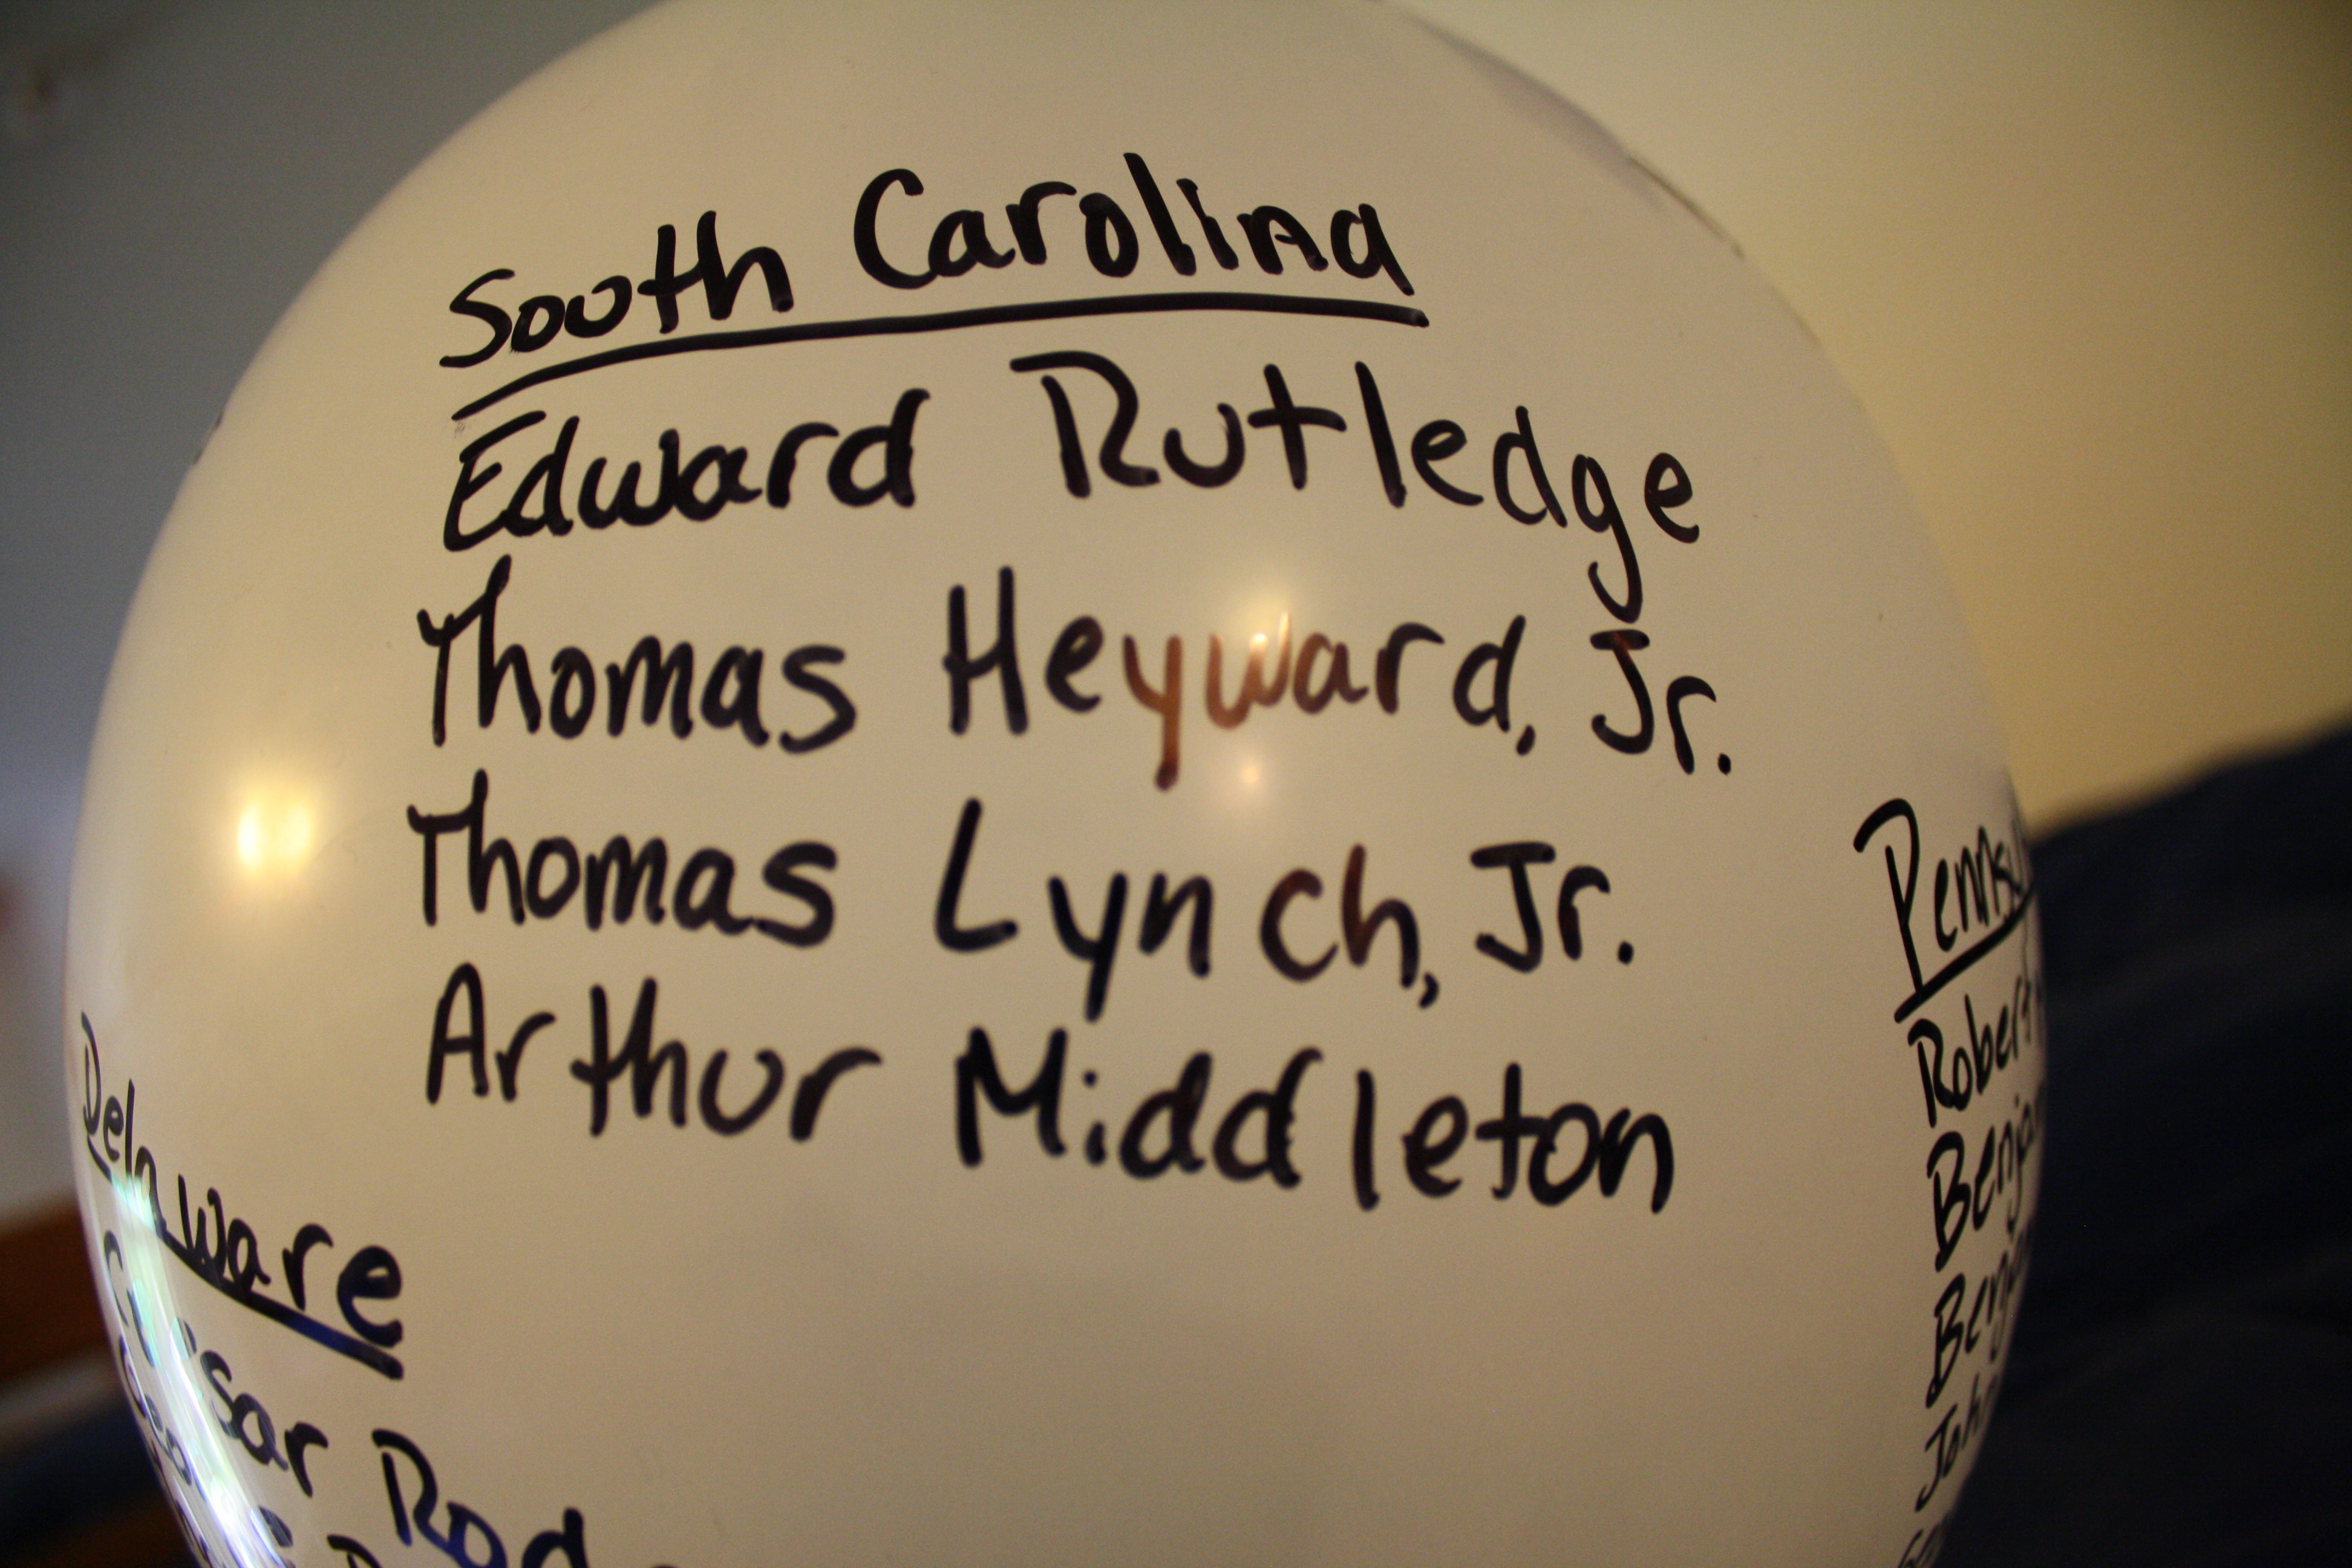 South Carolina
Edward Rutledge
Thomas Heyward, Jr.
Thomas Lynch, Jr.
Arthur Middleton
Delaware
Pennsy
Robert
Benja
Benj
Joh